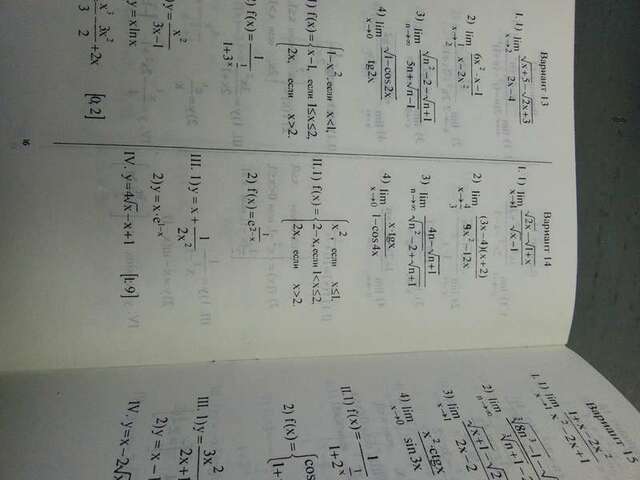 Вариант 13
I. 1) lim x→2 (√x+5 − √2x+3)/(2x−4)
2) lim x→1/2 (6x²−x−1)/(x−2x²)
3) lim n→∞ (√n²−2−√n+1)/(5n+√n−1)
4) lim x→0 √1−cos2x/tg2x
1) f(x)= {1−x², если x<1,
x−1, если 1≤x≤2,
2x, если x>2.
2) f(x)=1/(1+3^(1/x))
y= x²/(3x−1)
y=x lnx
x³/3 3x²/2 +2x [0,2]
Вариант 14
I. 1) lim x→1 (√2x−√1+x)/(√x−1)
2) lim x→4/3 (3x−4)(x+2)/(9x²−12x)
3) lim n→∞ (4n−√n+1)/(√n²−2+√n+1)
4) lim x→0 x·tgx/(1−cos4x)
II. 1) f(x)= {x², если x≤1,
2−x, если 1<x≤2,
2x, если x>2.
III. 1) y=x+1/(2x²)
2) y=x·e^(1−x)
IV. y=4√x−x+1 [1;9]
16
Вариант 15
I. 1) lim x→1 (1+x−2x²)/(x²−2x+1)
2) lim n→∞
3) lim x→1 √x+1−√2 / 2x−2
4) lim x→0 x²·ctgx/sin3x
II. 1) f(x)= 1/(1+2^(1/x))
2) f(x)= {cos
1+
III. 1) y= 3x²/2x+
2) y=x−
IV. y=x−2√